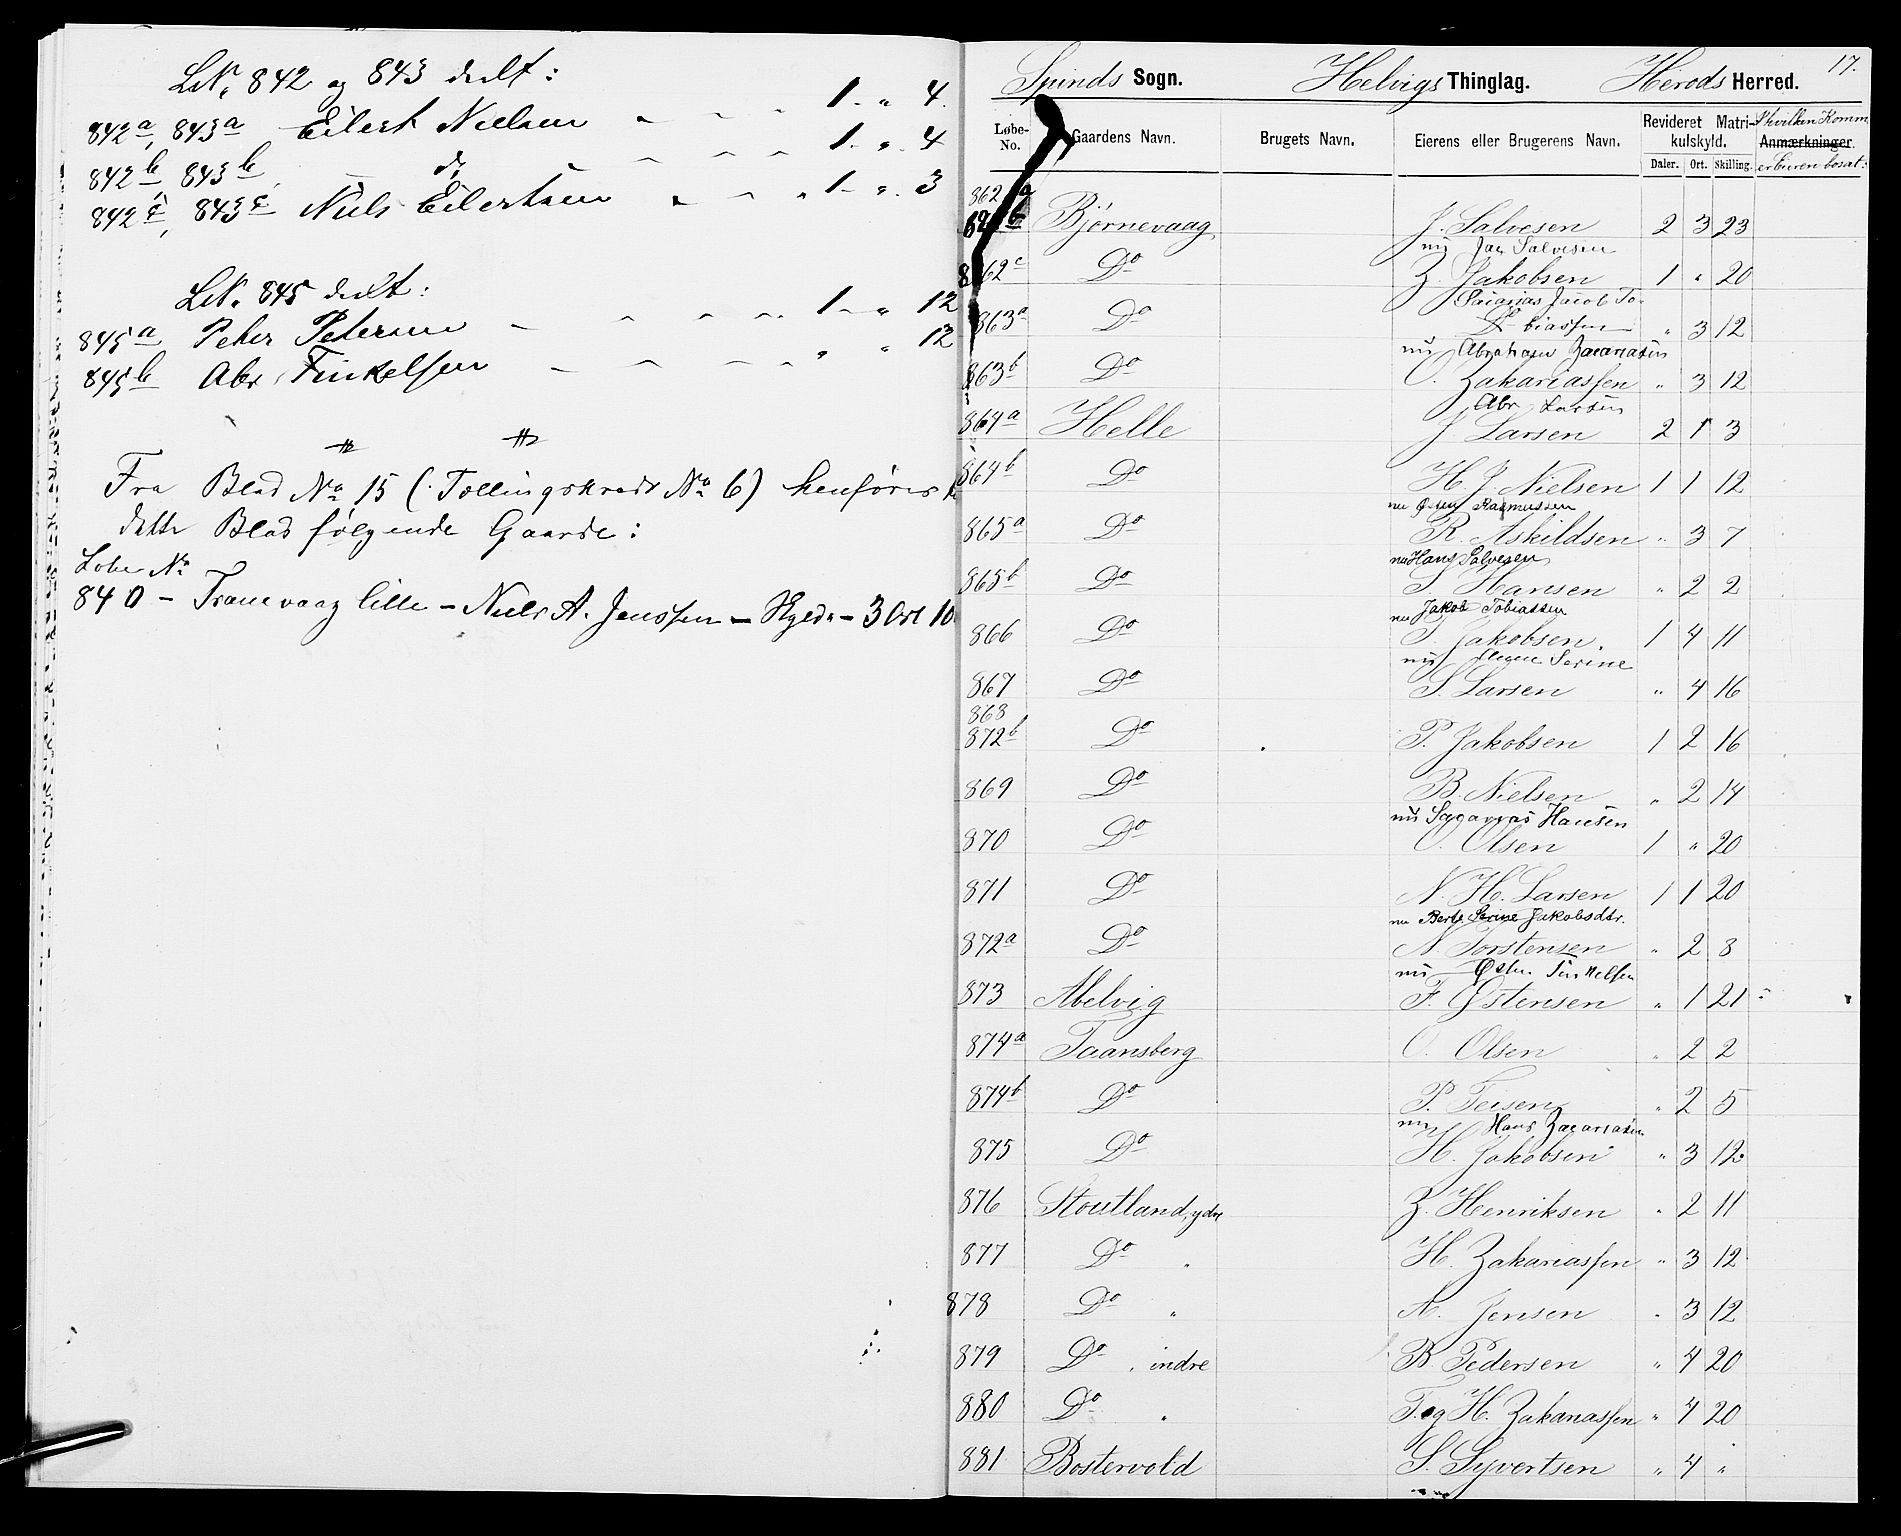 LN. 842 og 843 deelt:
842a, 843a Eilert Nielsen 1 - " 4.
842b, 843b do 1 - " 4
842c, 843c Niels Eilertsen 1 - " 3
LN. 845 deelt:
845a Peter Petersen 1 - " 12
845b Abr. Finkelsen " " 12
Fra Blad No 15 (Tællingskreds No 6) henføres
dette Blad følgende Gaarde:
Løbe No
840 - Tranevaag lille - Niels A. Jenssen - Skyld - 3 Ort 10
17.
Spinds Sogn. Helvigs Thinglag. Herods Herred.
Løbe-No. Gaardens Navn. Brugets Navn. Eierens eller Brugerens Navn. Revideret Matrikulskyld. Anmærkninger.
I hvilken Komm. er Eieren bosat:
Daler. Ort. Skilling.
862a
b Bjørnevaag J. Salvesen 2 3 23
nu Jan Salvesen
862c Do Z. Jakobsen 1 " 20
Sacarias Jacob Tobiassen
863a Do " 3 12
nu Abraham Zacariasen
863b Do O. Zakariassen " 3 12
Abr. Larsen
864a Helle J Larsen 2 1 3
864b Do H. J. Nielsen 1 1 12
nu Østen Rasmussen
865a Do R. Askildsen " 3 7
nu Hans Salvesen
865b Do S. Hansen " 2 2
nu Jakob Tobiassen
866 Do T. Jakobsen. 1 4 11
nu Serine
867 Do S. Larsen " 4 16
868
872b Do P. Jakobsen 1 2 16
869 Do B. Nielsen " 2 14
nu Sacarias Hansen
870 Do O. Olsen 1 " 20
871 Do N. H. Larsen 1 1 20
nu Berte Serine Jakobsdtr.
872a Do N. Torstensen " 2 8
nu Østen Finkelsen
873 Abelvig F. Østensen " 1 21
874a Taansberg O. Olsen " 2 2
874b Do P. Teisen " 2 5
nu Hans Zacariasen
875 Do H. Jakobsen " 3 12
876 Stoutland, ydre Z. Henriksen " 2 11
877 Do " H. Zakariassen " 3 12
878 Do " A. Jensen " 3 12
879 Do , indre B. Pedersen " 4 20
880 Do " T. og H. Zakariassen " 4 20
881 Bostervold S. Syvertsen " 4 "